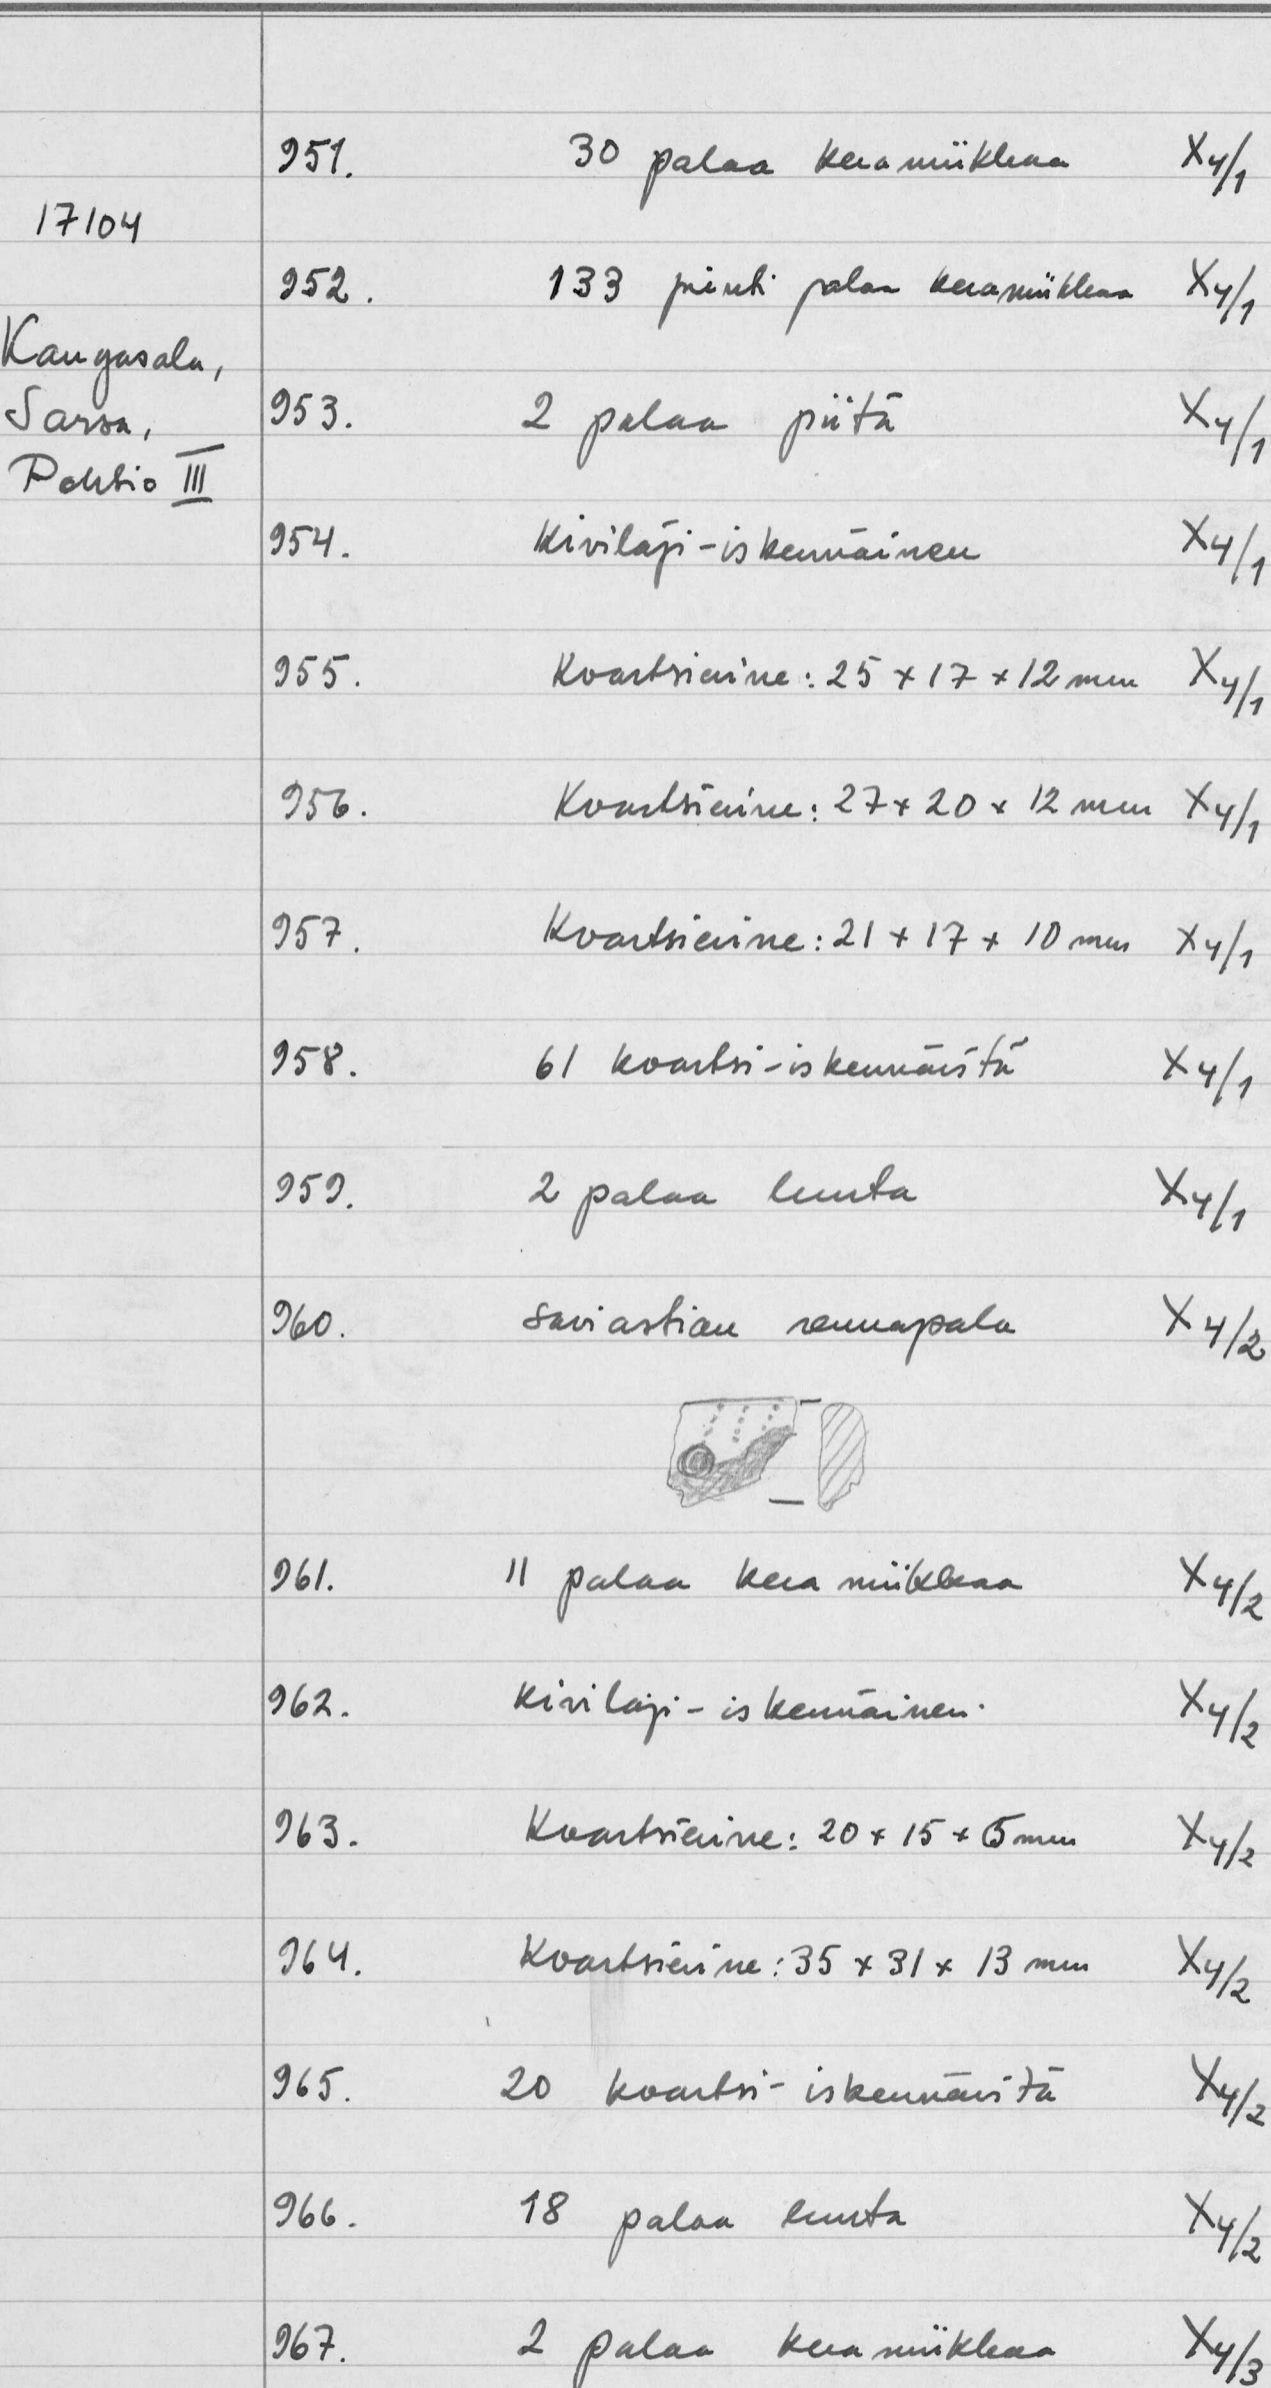 951. 30 palaa keramiikkaa X4/1
17104
952. 133 pintipalaa keramiikkaa X4/1
Kangasala,
Sarsa,
953. 2 palaa piitä X4/1
Pohtio III
954. Kivilaji-iskennäinen X4/1
955. Kvartsiesine: 25 x 17 x 12 mm X4/1
956. Kvartsiesine: 27 x 20 x 12 mm X4/1
957. Kvartsiesine: 21 x 17 x 10 mm X4/1
958. 61 kvartsi-iskennäistä X4/1
959. 2 palaa luuta X4/1
960. Saviastian reunapala X4/2
961. 11 palaa keramiikkaa X4/2
962. Kivilaji-iskennäinen. X4/2
963. Kvartsiesine: 20 x 15 x 5 mm X4/2
964. Kvartsiesine: 35 x 31 x 13 mm X4/2
965. 20 kvartsi-iskennäistä X4/2
966. 18 palaa luuta X4/2
967. 2 palaa keramiikkaa X4/3